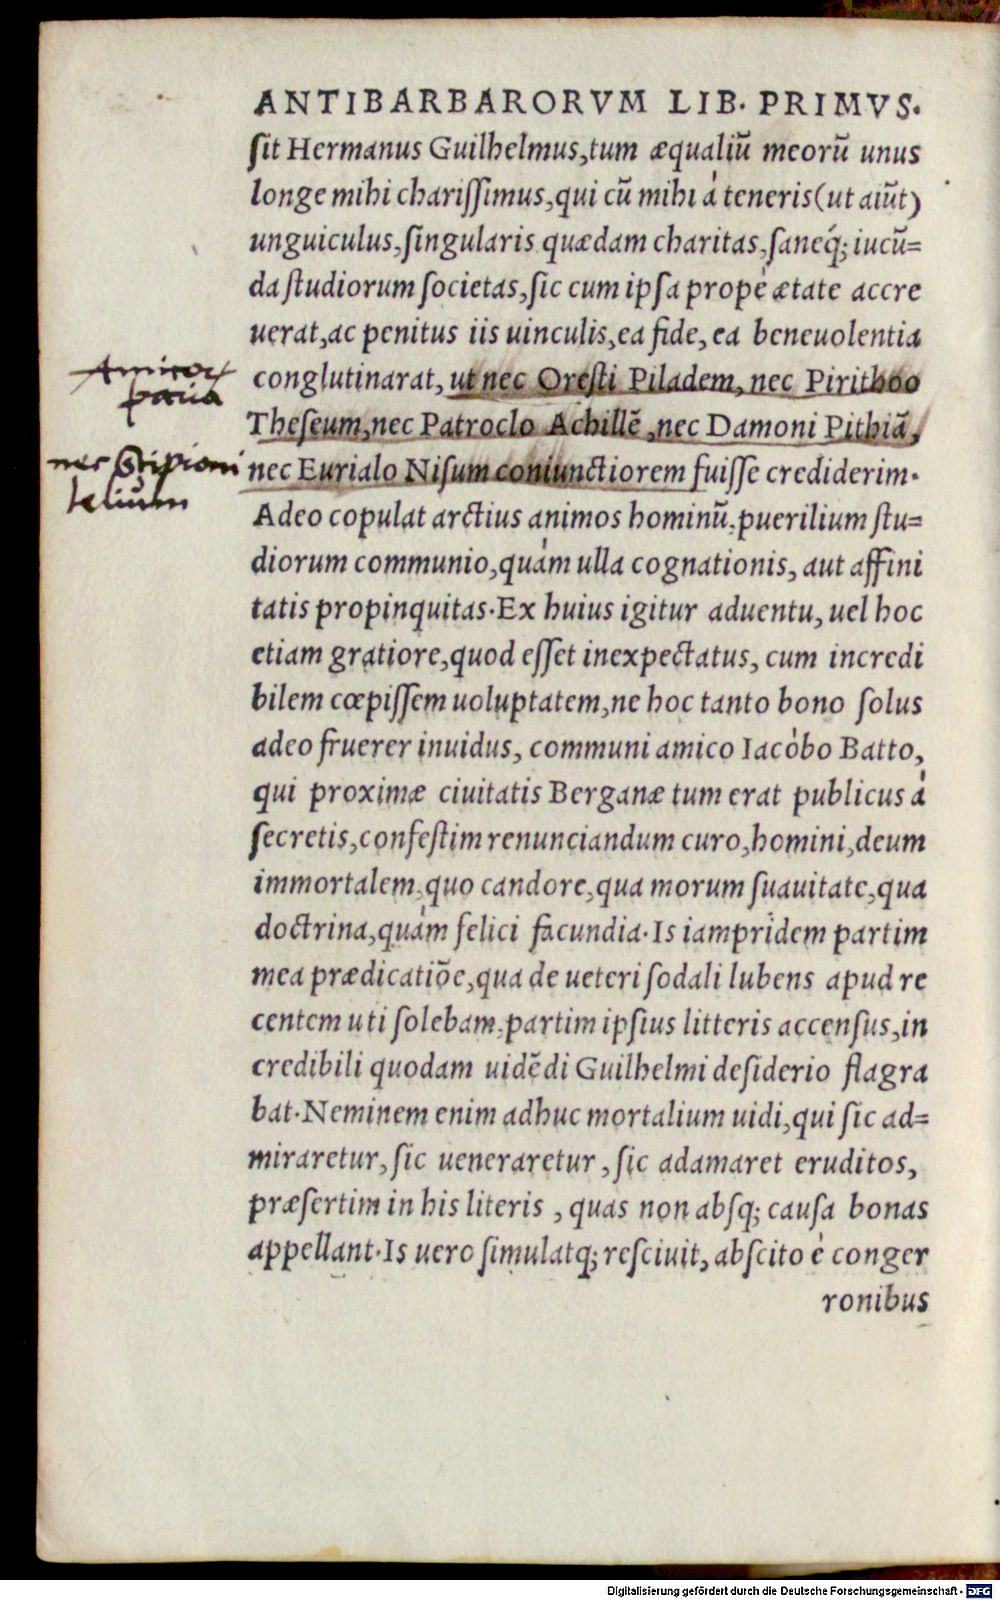 ANTIBARBARORVM LIB. PRIMVS.
ſit Hermanus Guilhelmus,tum æqualiū meorū unus
longe mihi chariſſimus,qui cū mihi à teneris(ut aiūt)
unguiculus,ſingularis quædam charitas,ſaneq́; iucū=
da ſtudiorum ſocietas,ſic cum ipſa propè ætate accre
uerat,ac penitus iis uinculis,ea fide, ea beneuolentia
conglutinarat, ut nec Oreſti Piladem, nec Pirithoo
Theſeum,nec Patroclo Achillē ,nec Damoni Pithiā,
nec Eurialo Niſum coniunctiorem fuiſſe crediderim.
Amicor
paria
nec Scipioni
lelium
Adeo copulat arctius animos hominū,puerilium ſtu=
diorum communio,quàm ulla cognationis, aut affini
tatis propinquitas.Ex huius igitur aduentu, uel hoc
etiam gratiore,quod eſſet inexpectatus, cum incredi
bilem cœpiſſem uoluptatem,ne hoc tanto bono ſolus
adeo fruerer inuidus, communi amico Iacòbo Batto,
qui proximæ ciuitatis Berganæ tum erat publicus à
ſecretis,confeſtim renunciandum curo,homini,deum
immortalem,quo candore,qua morum ſuauitate,qua
doctrina,quàm felici facundia.Is iampridem partim
mea prædicatiōe,qua de ueteri ſodali lubens apud re
centem uti ſolebam,partim ipſius litteris accenſus,in
credibili quodam uidēdi Guilhelmi deſiderio flagra
bat.Neminem enim adhuc mortalium uidi,qui ſic ad=
miraretur, ſic ueneraretur , ſic adamaret eruditos,
præſertim in his literis , quas non abſq; cauſa bonas
appellant.Is uero ſimulatq; reſciuit, abſcito è conger
ronibus
Digitalisierung gefördert durch die Deutsche Forschungsgemeinschaft - DFG